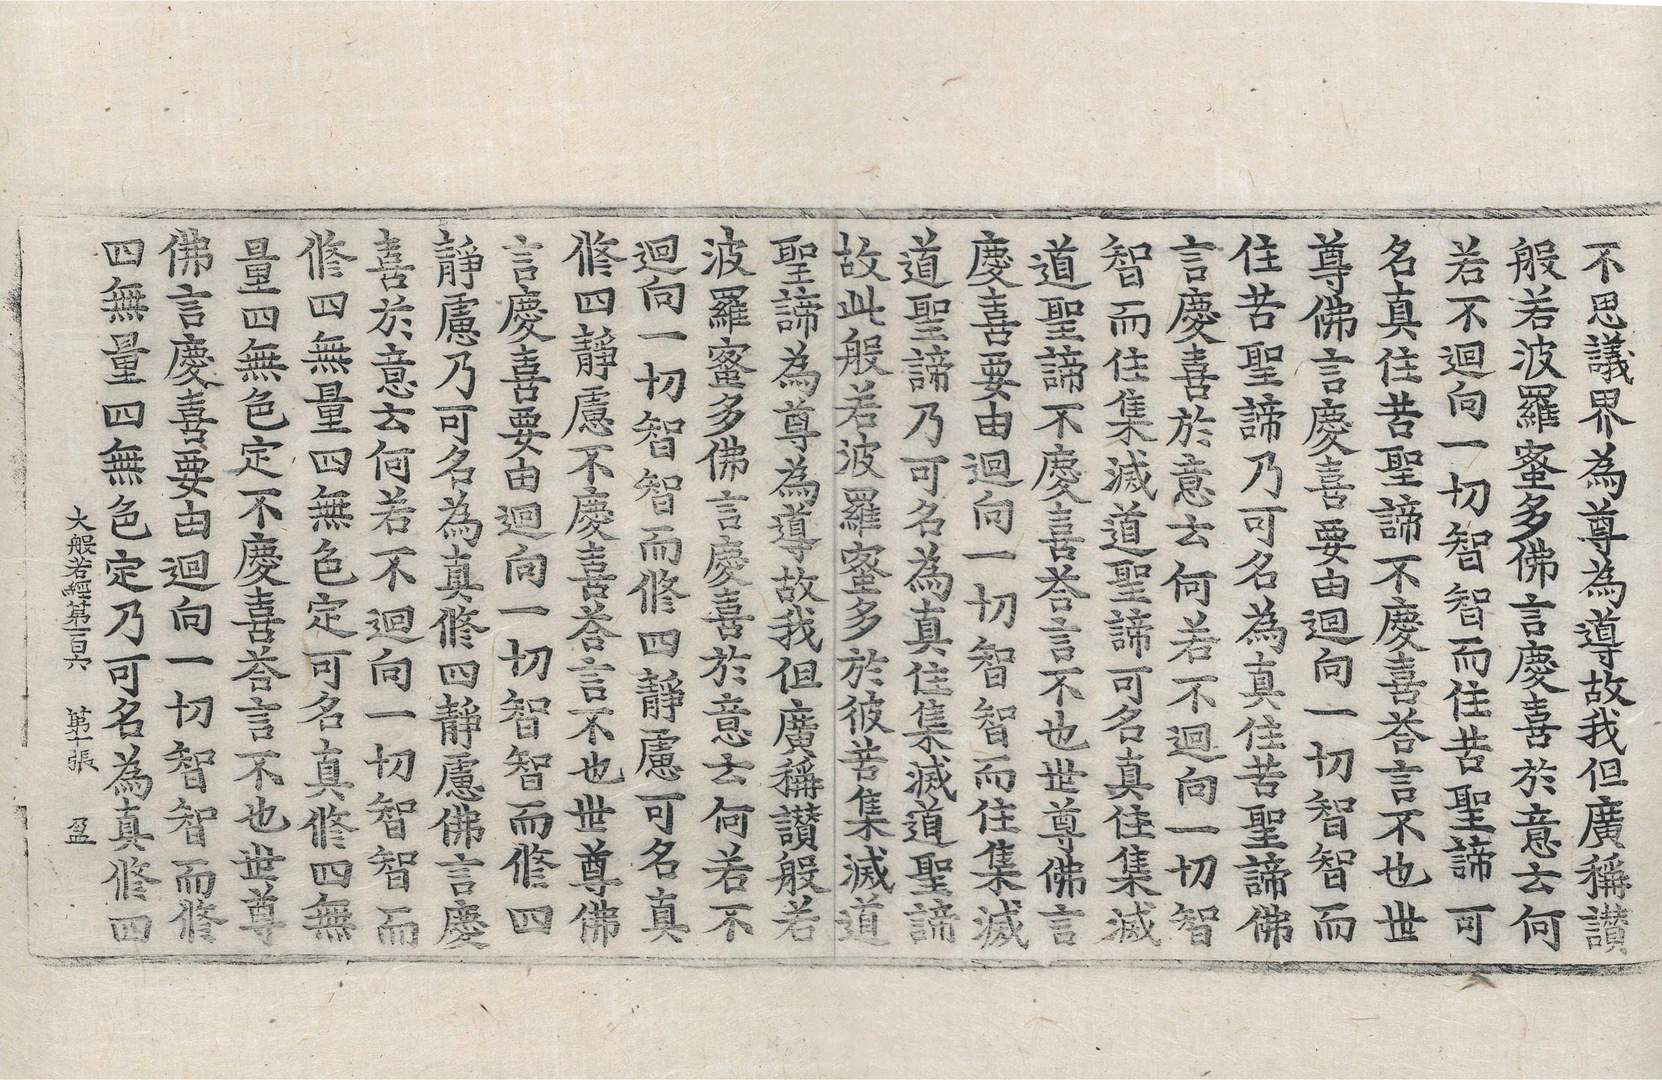 不思議界為尊為導故我但廣稱讃
般若波羅蜜多佛言慶喜於意云何
若不迴向一切智智而住苦聖諦可
名真住苦聖諦不慶喜荅言不也世
尊佛言慶喜要由迴向一切智智而
住苦聖諦乃可名為真住苦聖諦佛
言慶喜於意云何若不迴向一切智
智而住集滅道聖諦可名真住集滅
道聖諦不慶喜荅言不也世尊佛言
慶喜要由迴向一切智智而住集滅
道聖諦乃可名為真住集滅道聖諦
故此般若波羅蜜多於彼苦集滅道
聖諦為尊為導故我但廣稱讃般若
波羅蜜多佛言慶喜於意云何若不
迴向一切智智而修四靜慮可名真
修四靜慮不慶喜荅言不也世尊佛
言慶喜要由迴向一切智智而修四
靜慮乃可名為真修四靜慮佛言慶
喜於意云何若不迴向一切智智而
修四無量四無色定可名真修四無
量四無色定不慶喜荅言不也世尊
佛言慶喜要由迴向一切智智而修
四無量四無色定乃可名為真修四
大般若經第一百六 第十張 盈